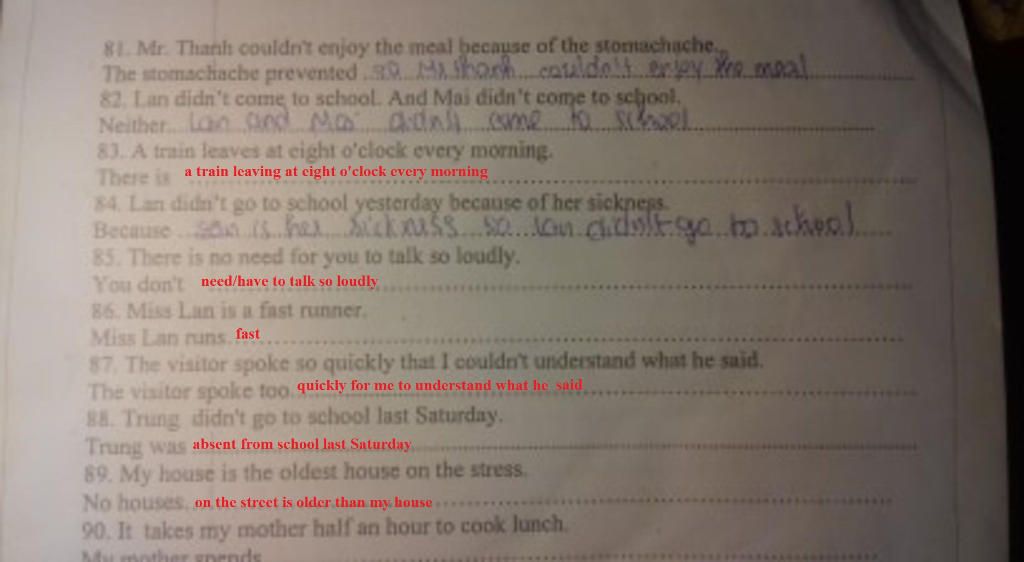 81. Mr. Thanh couldn't enjoy the meal because of the stomachache.
The stomachache prevented so Mr thanh couldn't enjoy the meal
82. Lan didn't come to school. And Mai didn't come to school.
Neither Lan and Mai didn't come to school
83. A train leaves at eight o'clock every morning.
There is a train leaving at eight o'clock every morning
84. Lan didn't go to school yesterday because of her sickness.
Because is her sickness so lan didn't go to school
85. There is no need for you to talk so loudly.
You don't need/have to talk so loudly
86. Miss Lan is a fast runner.
Miss Lan runs fast
87. The visitor spoke so quickly that I couldn't understand what he said.
The visitor spoke too quickly for me to understand what he said
88. Trung didn't go to school last Saturday.
Trung was absent from school last Saturday
89. My house is the oldest house on the stress.
No houses on the street is older than my house
90. It takes my mother half an hour to cook lunch.
My mother spends